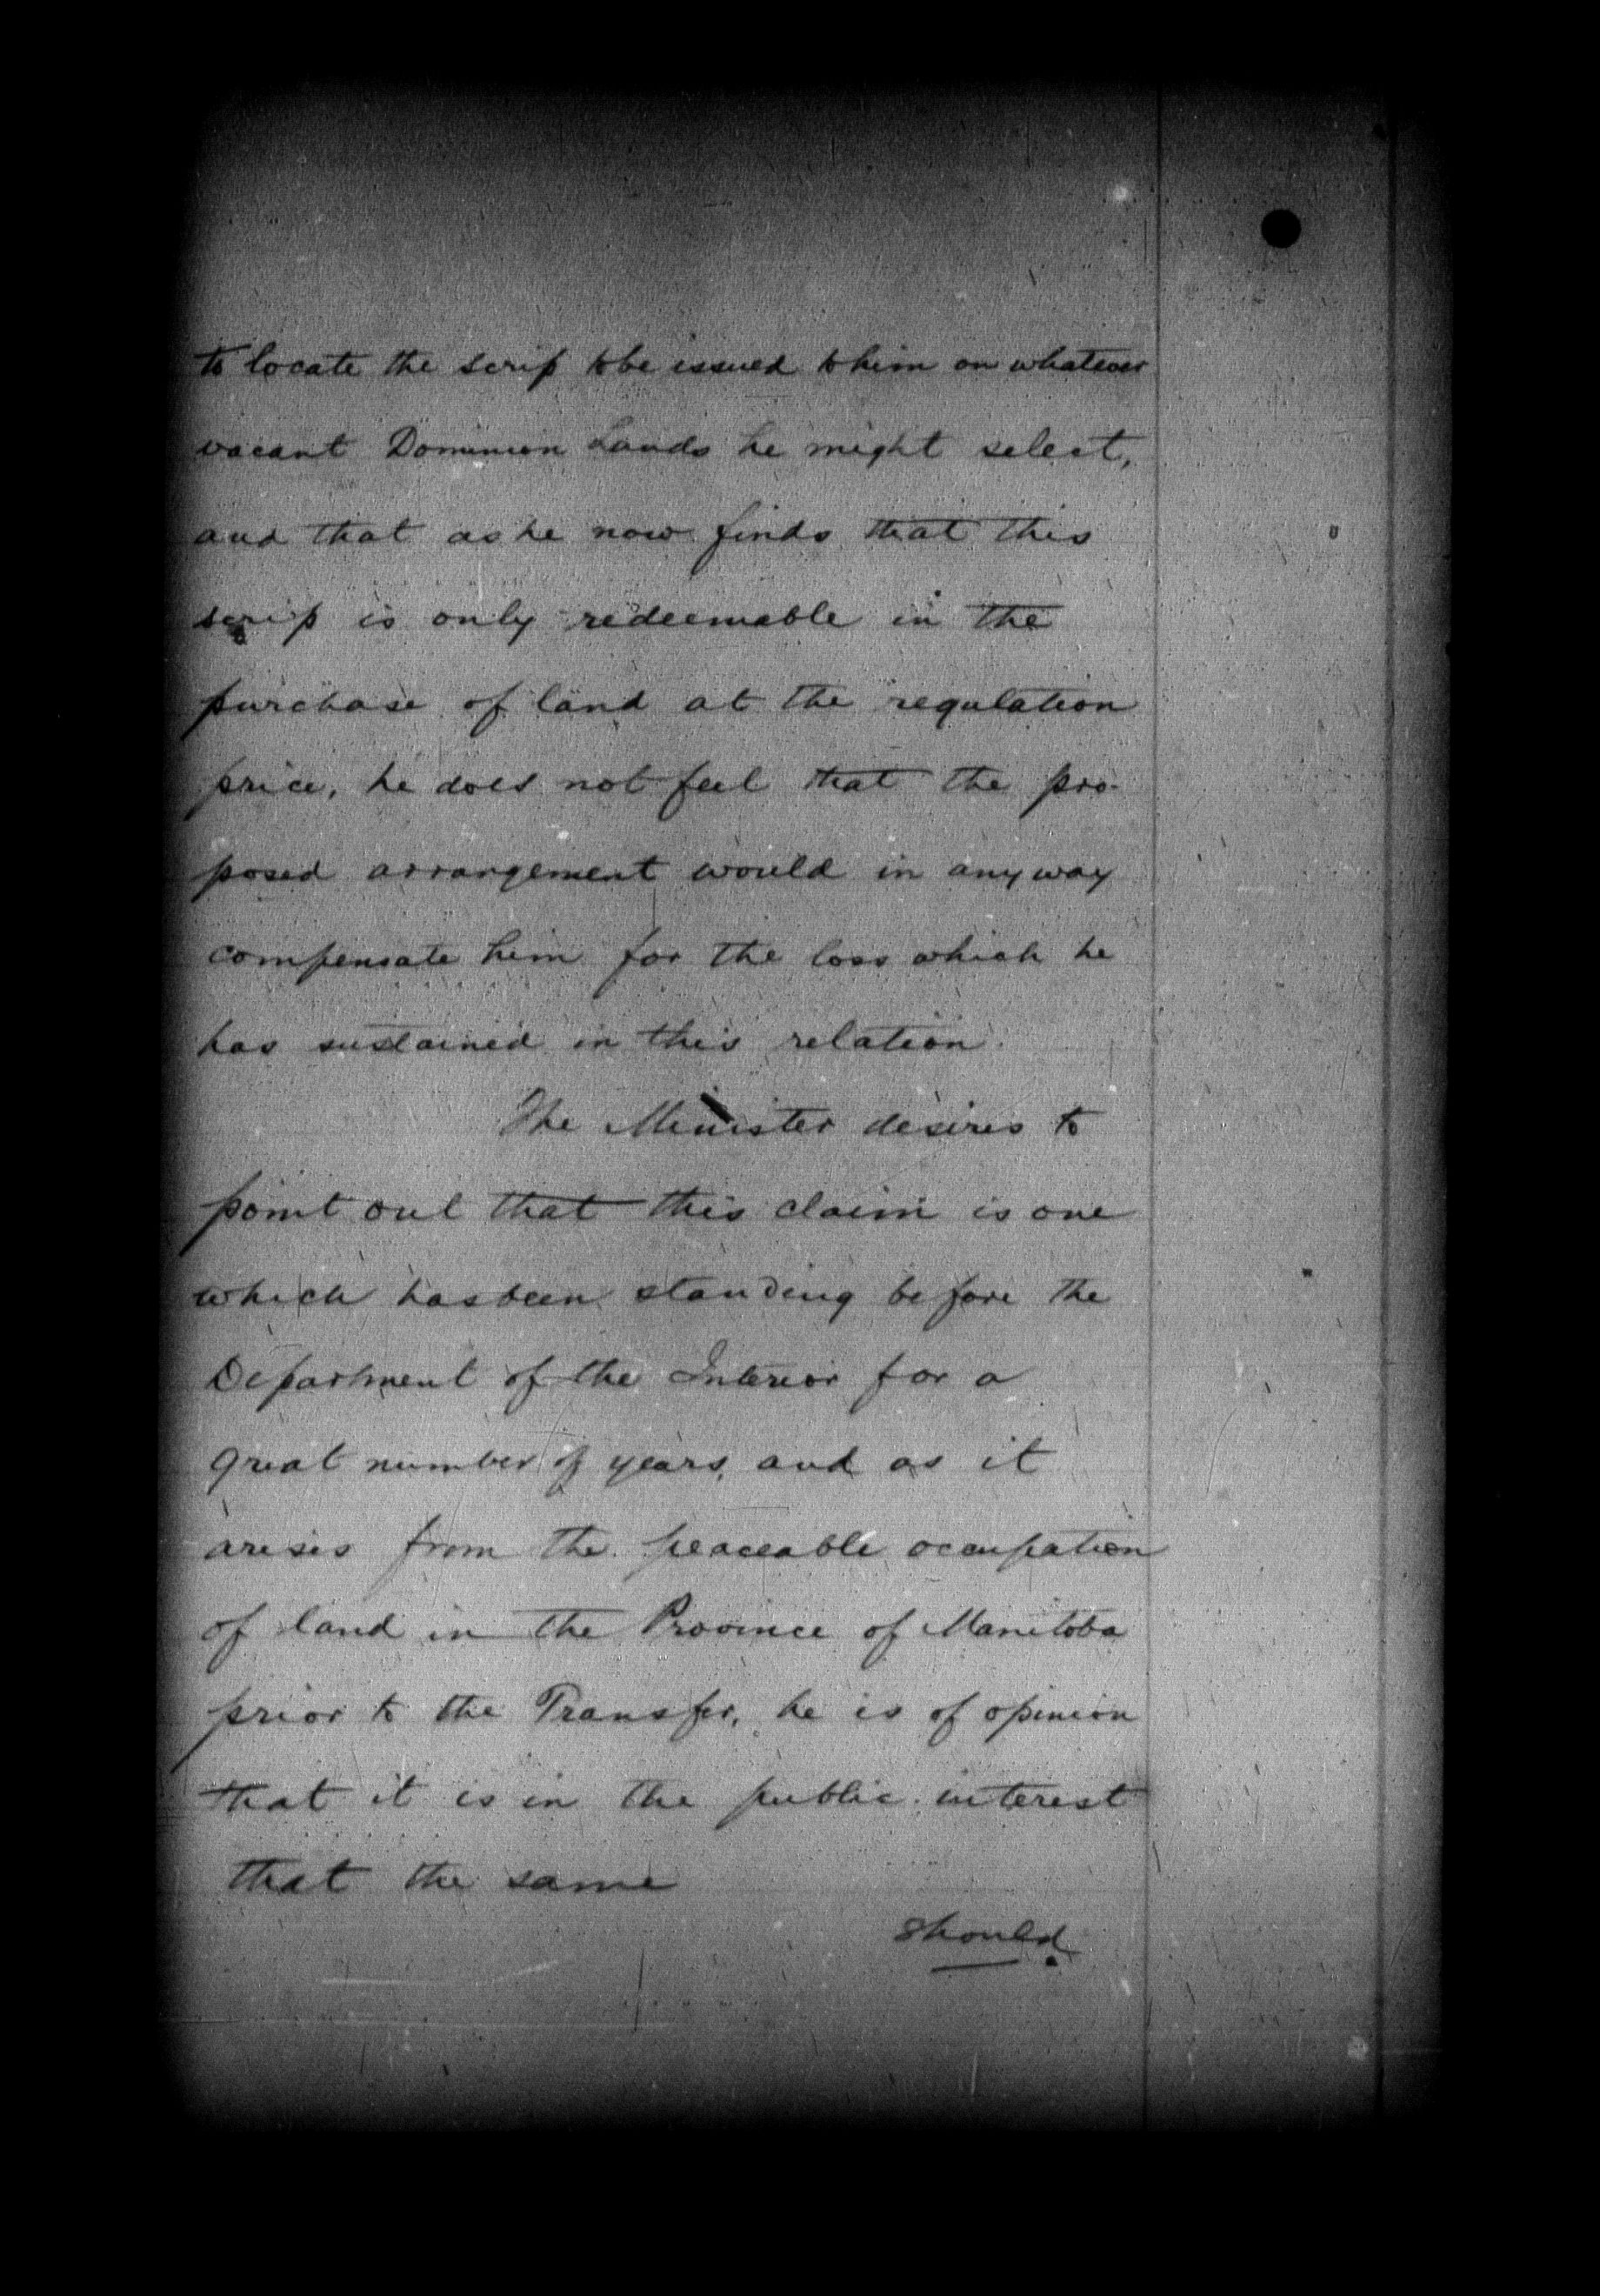 to locate the scrip to be issued to him on whatever
vacant Dominion Lands he might select,
and that as he now finds that this
scrip is only redeemable in the
purchase of land at the regulation
price, he does not feel that the pro-
posed arrangement would in any way
compensate him for the loss which he
has sustained in this relation.
The Minister desires to
point out that this claim is one
which has been standing before the
Department of the Interior for a
great number of years, and as it
arises from the peaceable occupation
of land in the Province of Manitoba
prior to the Transfer, he is of opinion
that it is in the public interest
that the same
should